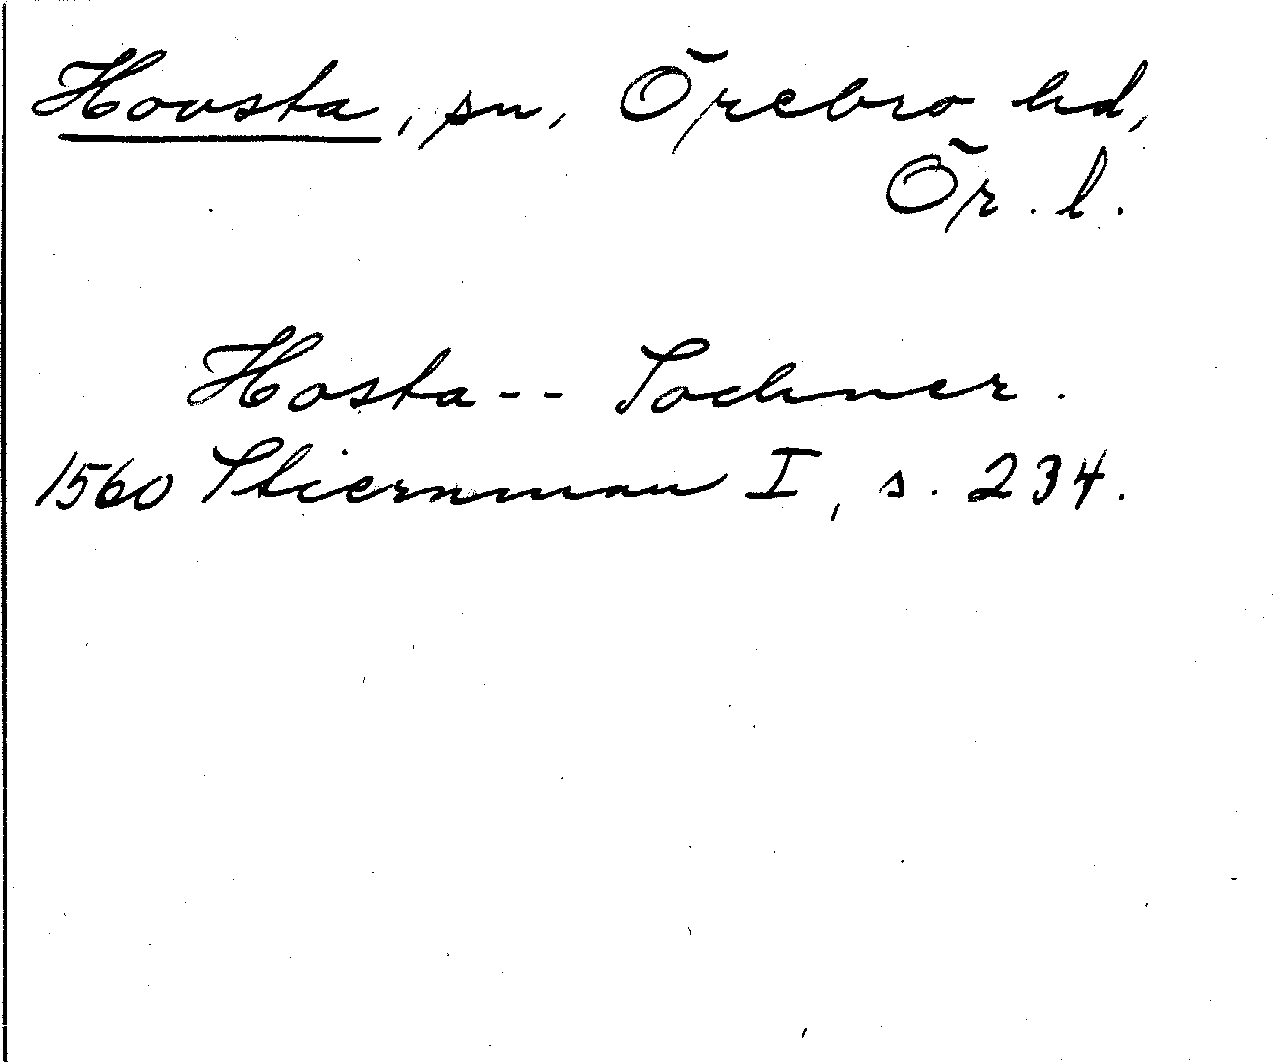 Hovsta, sn, Örebro hd,
Ör. l.
Hosta-- Sochner.
1560 Stiernman I, s. 234.